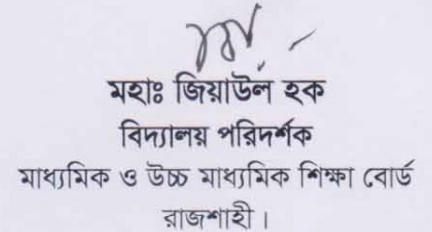 মহাঃ জিয়াউল হক
বিদ্যালয় পরিদর্শক
মাধ্যমিক ও উচ্চ মাধ্যমিক শিক্ষা বোর্ড
রাজশাহী ।